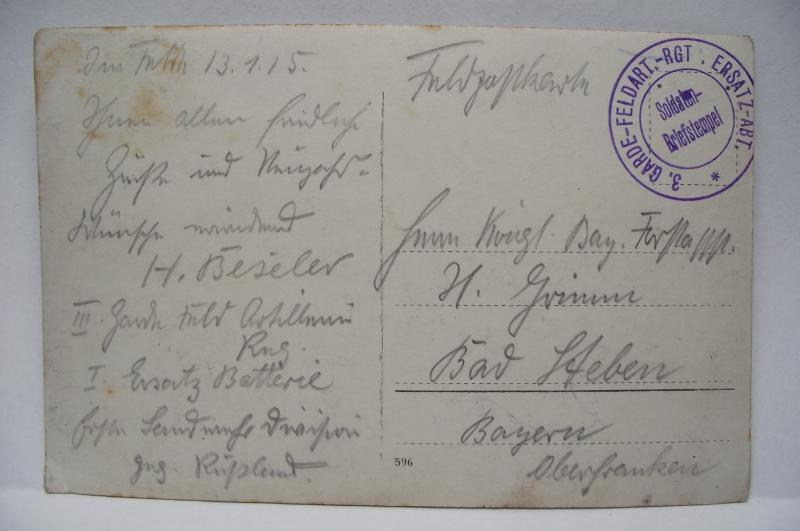 Im Felde 13.1.15.
Ihnen allen herzliche
Grüße und Neujahrs-
wünsche sendend
H. Beseler
III. Garde Feld Artillerie
Reg.
I Ersatz Batterie
Erste Landwehr Division
geg Rußland.
Feldpostkarte
3. GARDE-FELDART.-RGT. ERSATZ-ABT.
*
Soldaten-
Briefstempel
Herrn Königl. Bay. Forstasst.
H. Grimm
Bad Steben
Bayern
Oberfranken
596